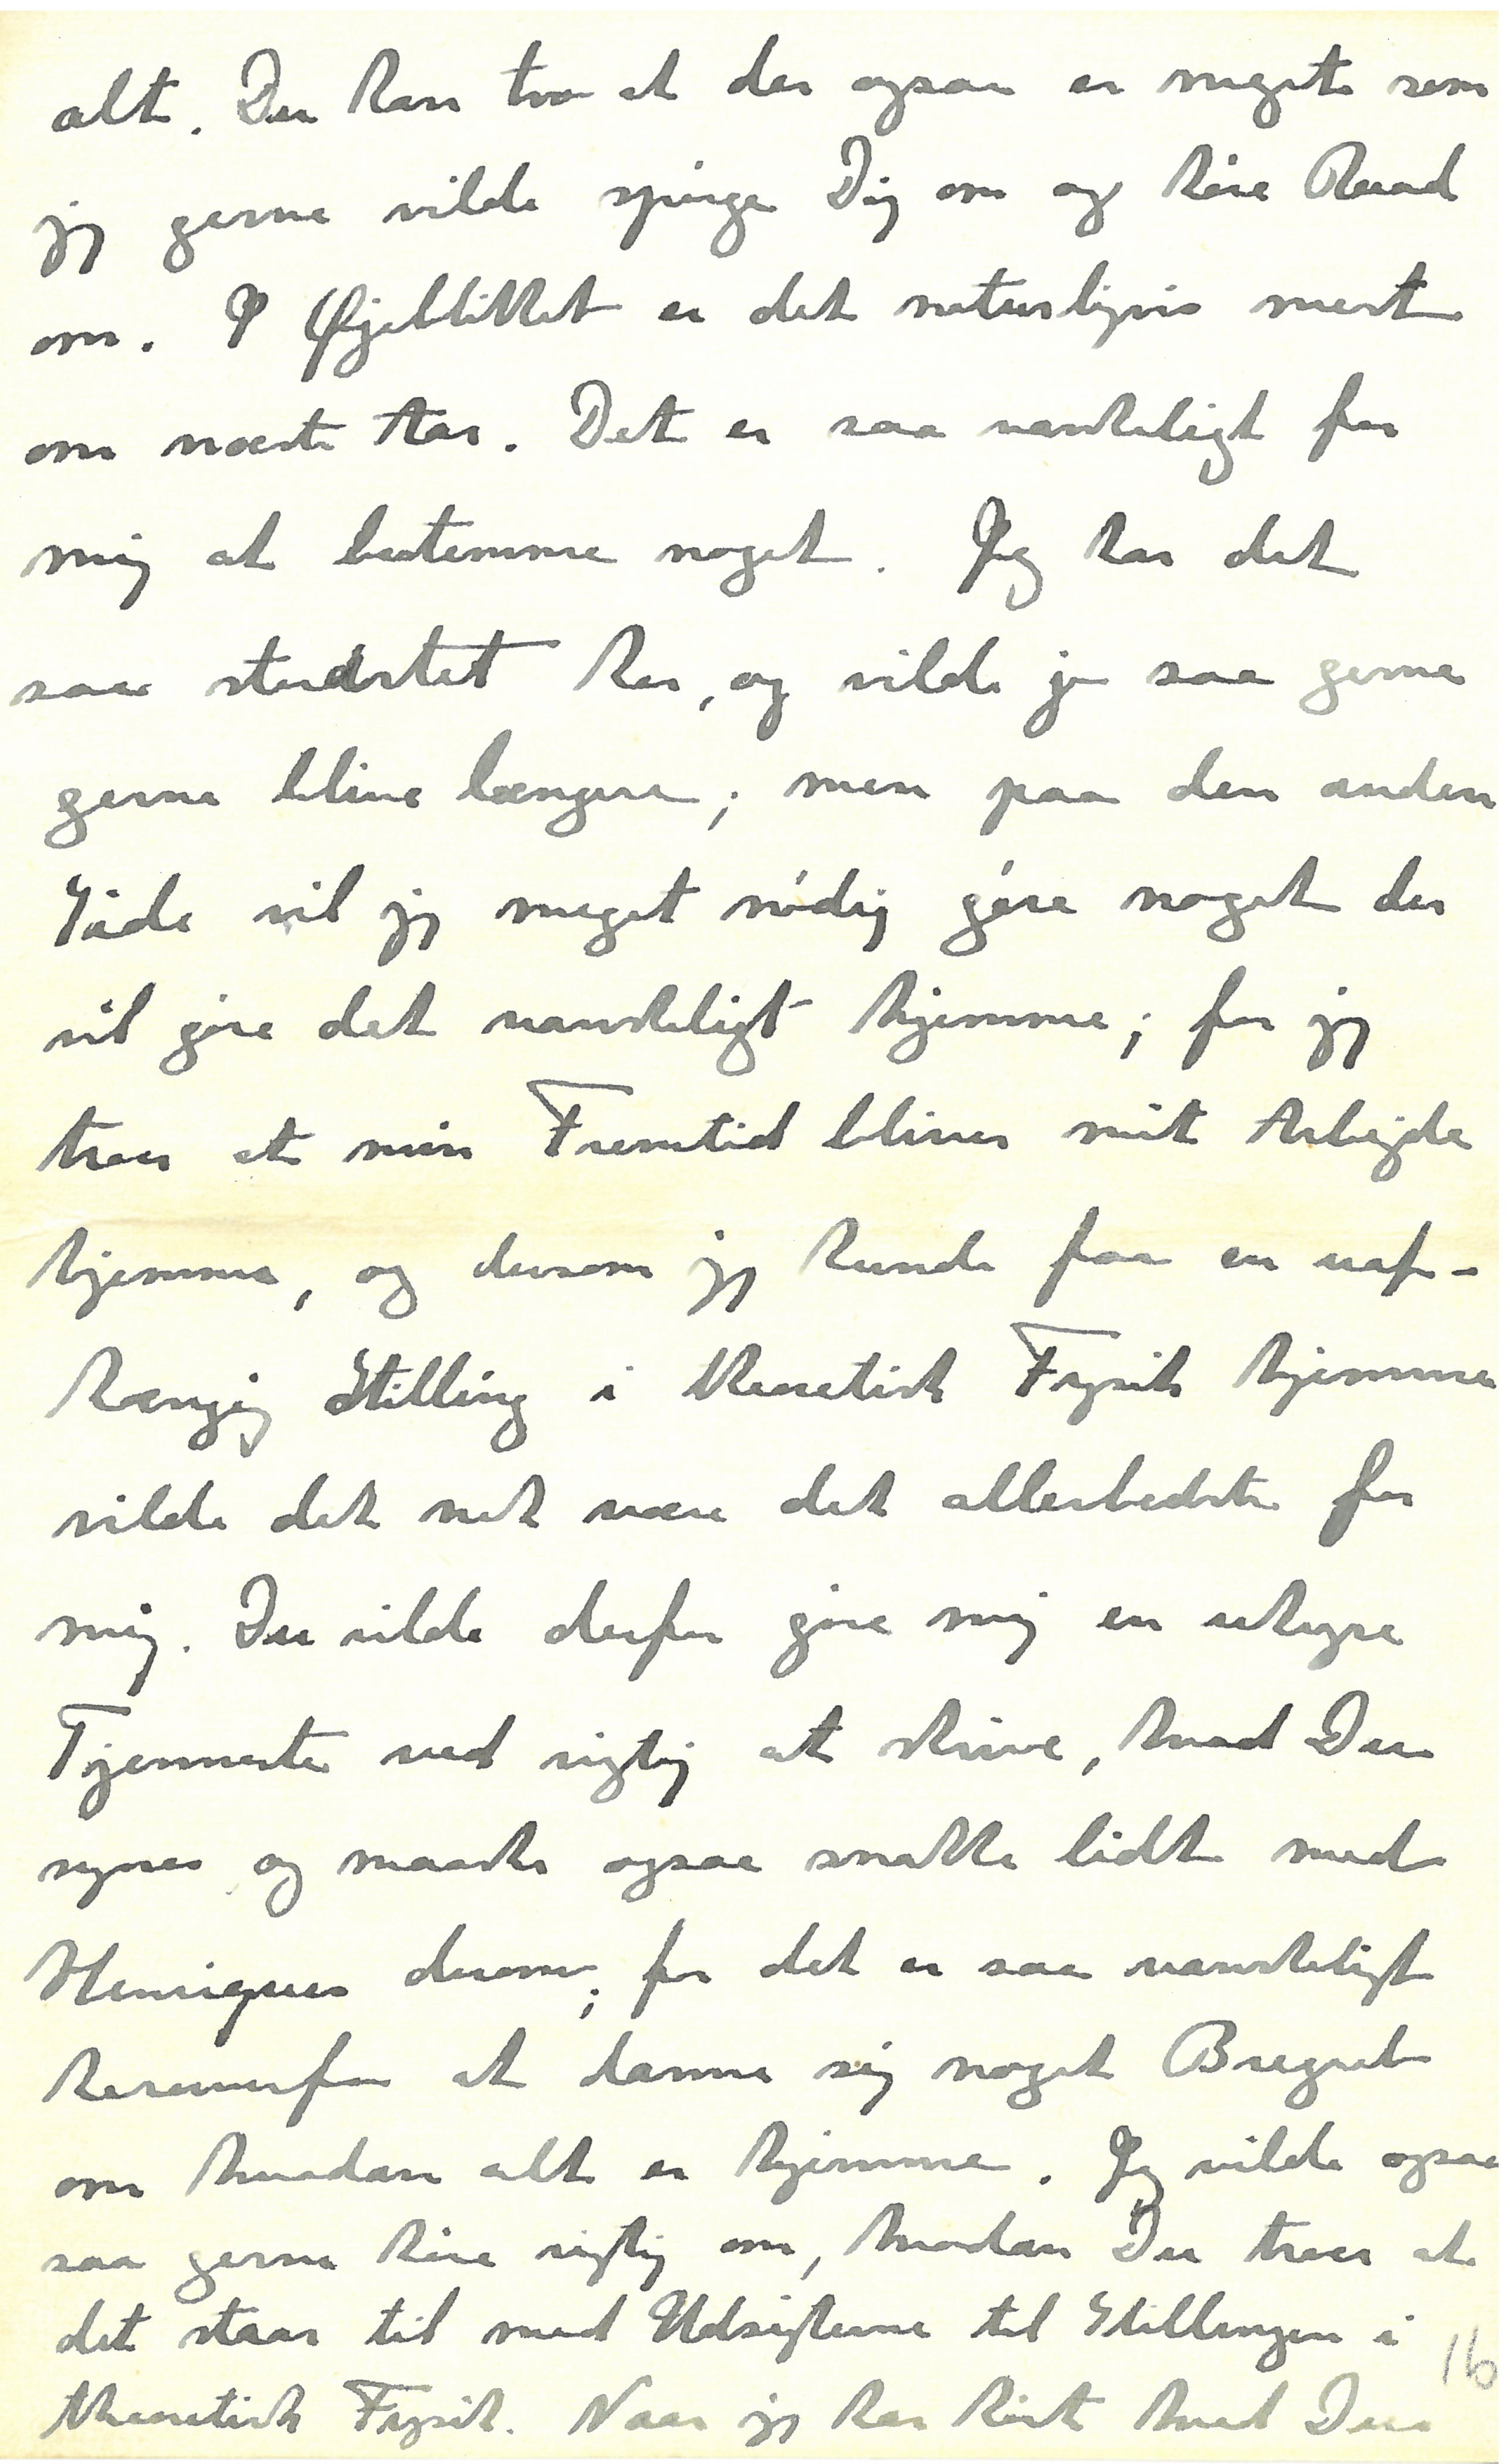 alt. Du kan tro at der ogsaa er meget som
jeg gerne vilde spørge Dig om og høre Raad
om. I Øjeblikket er det naturligvis mest
om næste Aar. Det er saa vanskeligt for
mig at bestemme noget. Jeg har det
saa storartet her, og vilde jo saa gerne
gerne blive længere; men paa den anden
Side vil jeg meget nødig gøre noget der
vil gøre det vanskeligt hjemme; for jeg
troer at min Fremtid bliver mit Arbejde
hjemme, og dersom jeg kunde faa en uaf-
hængig Stilling i theoretisk Fysik hjemme
vilde det nok være det allerbedste for
mig. Du vilde derfor gøre mig en uhyre
Tjenneste ved rigtig at skrive, hvad Du
synes og maaske ogsaa snakke lidt med
Henriques derom; for det er saa vanskeligt
herovrefra at danne sig noget Begreb
om hvordan alt er hjemme. Jeg vilde ogsaa
saa gerne høre rigtig om, hvordan Du troer at
det staar til med Udsigterne til Stillingen i
theoretisk Fysik. Naar jeg har hørt hvad Du
16